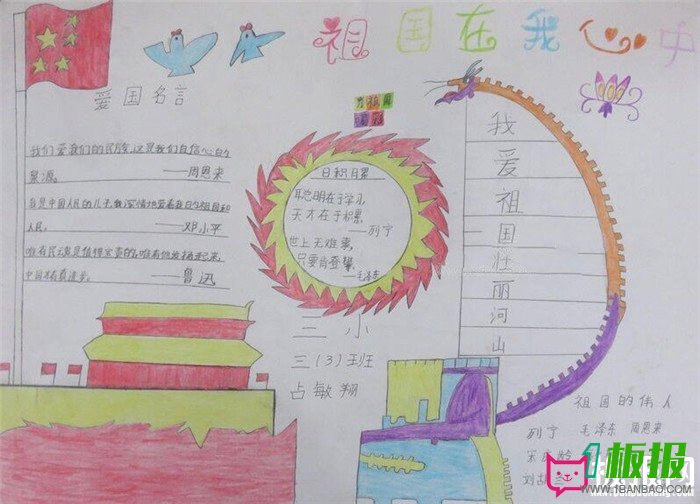 祖国在我心中
爱国名言
我们爱我们的民族,这是我们自信心的
泉源。——周恩来
我是中国人民的儿子,我深情地爱着我的祖国和
人民。——邓小平
唯有民魂是值得宝贵的,唯有他发扬起来,
中国才有真进步。——鲁迅
日积月累
聪明在于学习,
天才在于积累。
——列宁
世上无难事,
只要肯登攀。
——毛主席
我爱祖国壮丽河山
三小
三(3)班
占敏翔
祖国的伟人
列宁 毛泽东 周恩来
刘胡
1板报
1BANBAO.COM